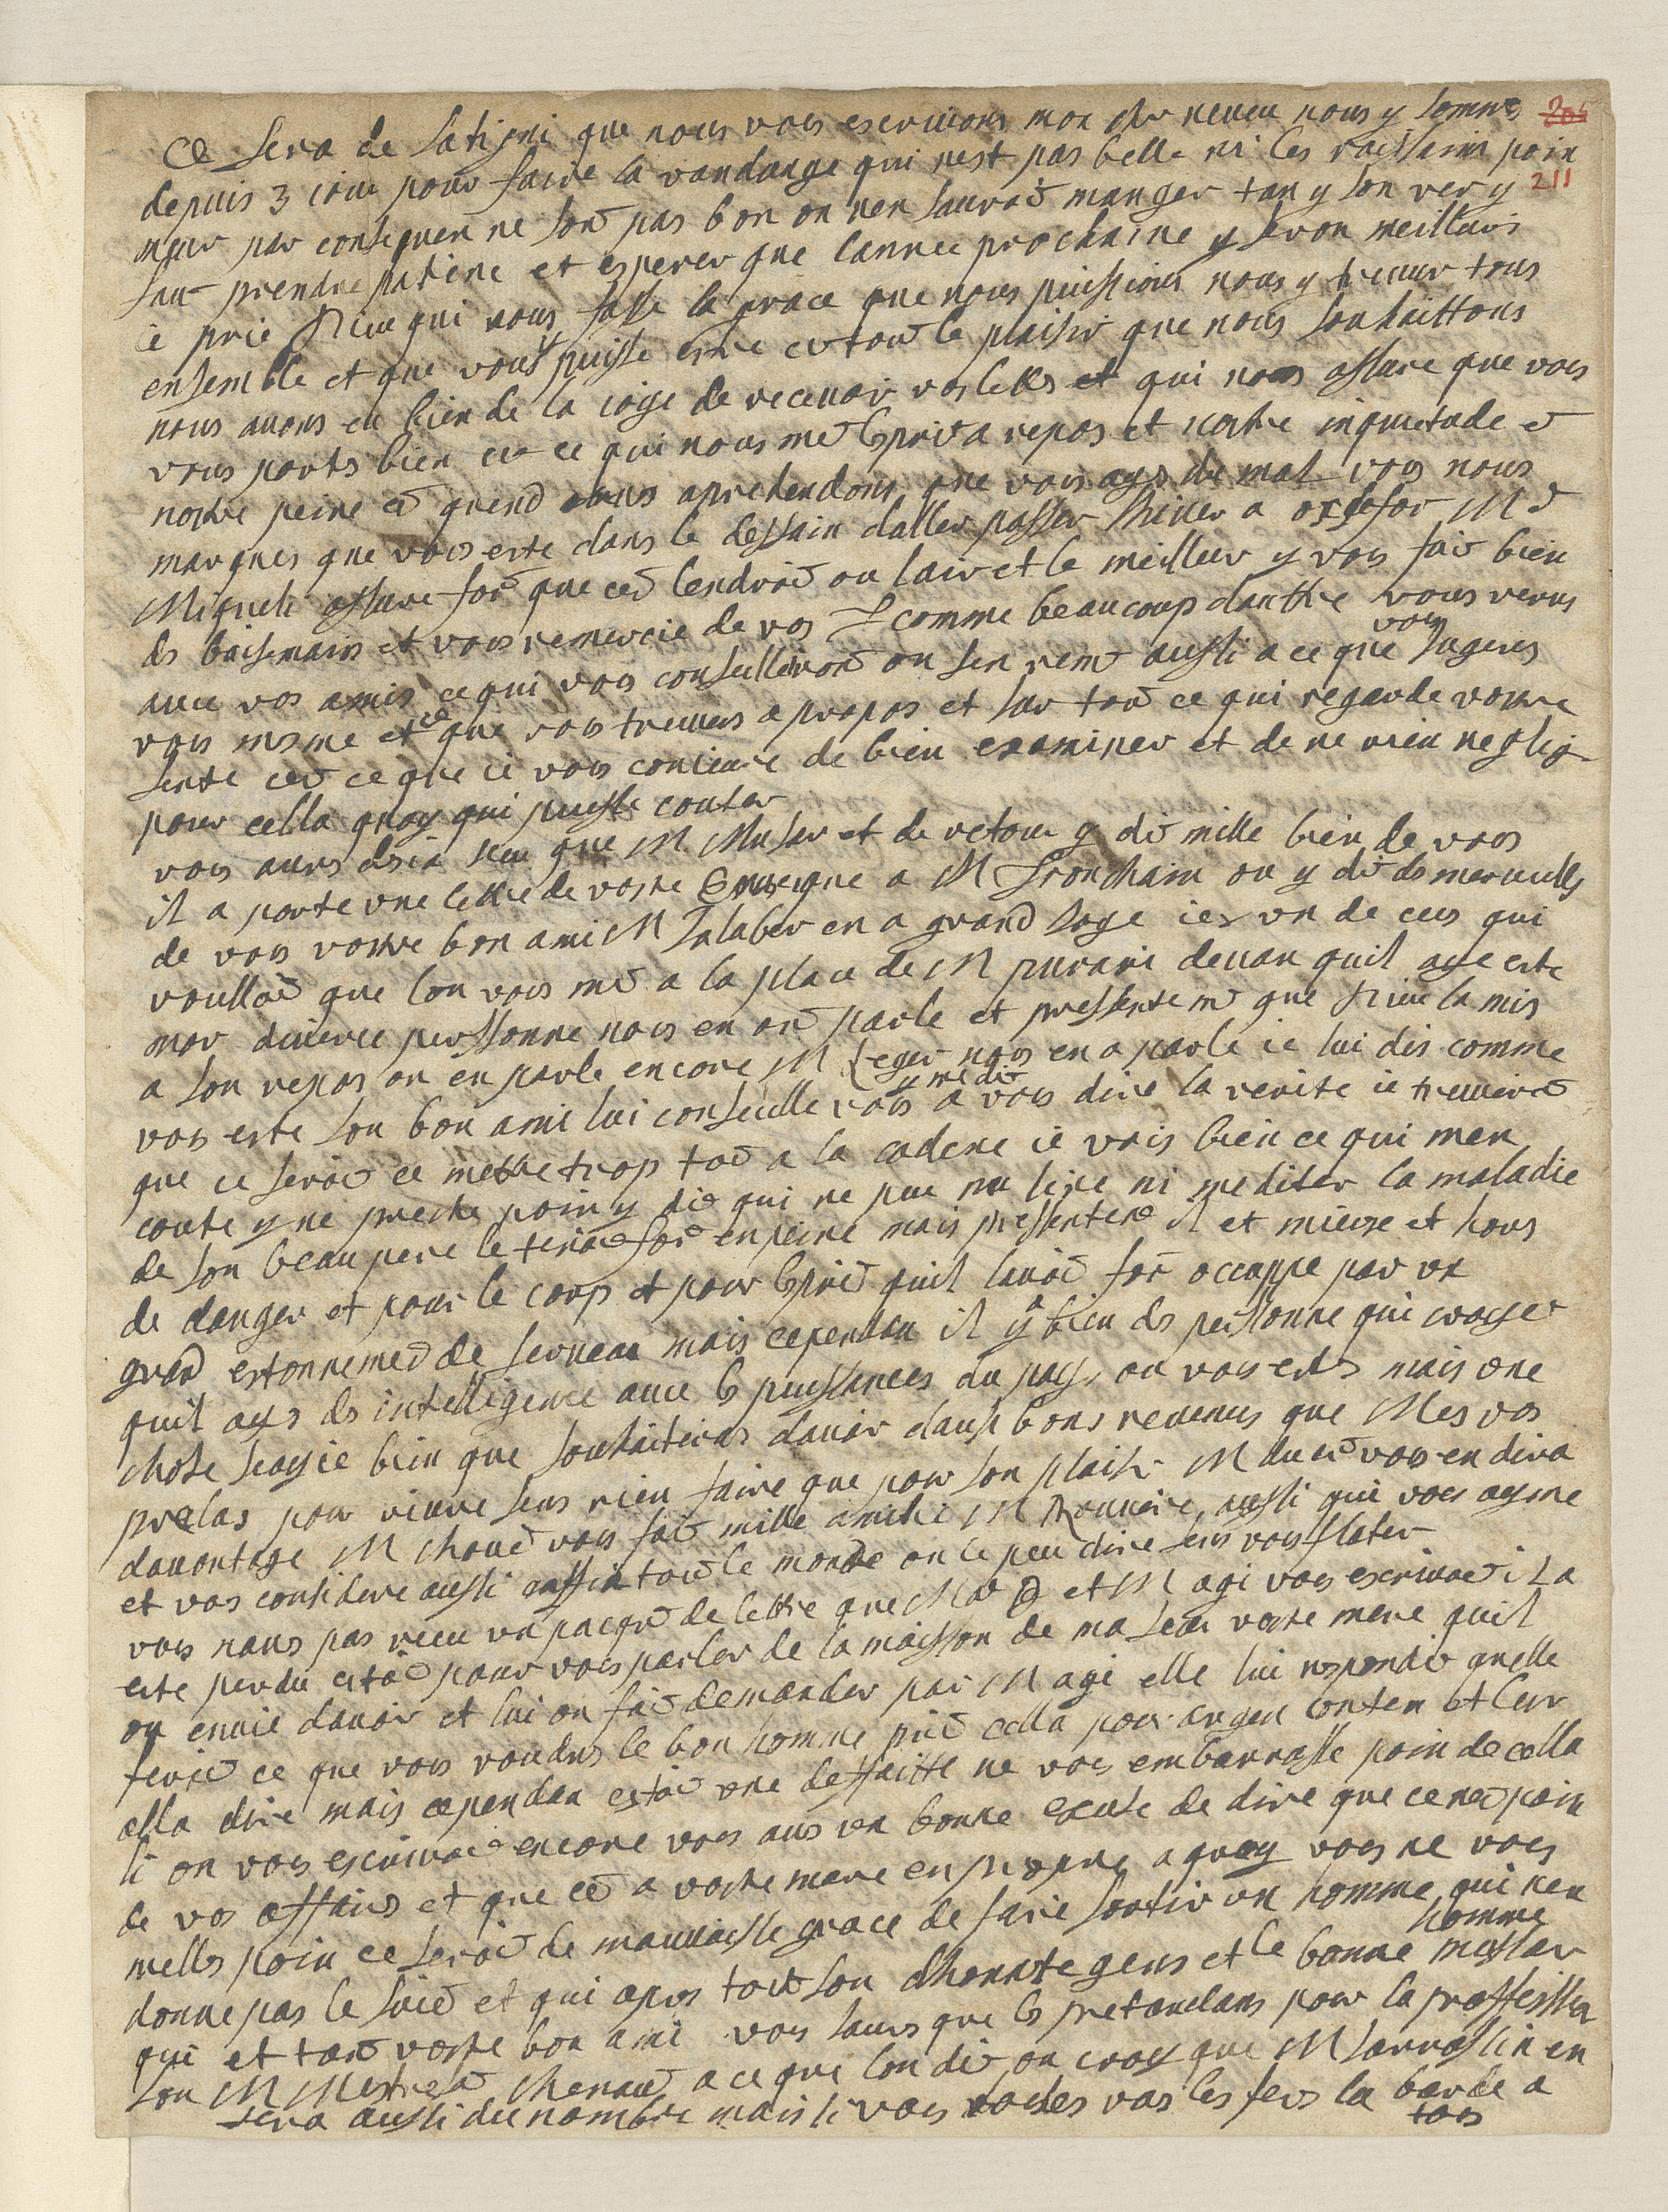 Ce sera de Satigni que nous vous escrivions mon cher neveu nous y sommes 205
depuis 3 iour pour faire la vandange qui nest pas belle ni les raissains poin 211
meur par consequen ne son pas bon on nen sauroit manger tan y son ver y
faut prendre patiene et esperer que lannee prochaine y seron meilleurs
ie prie Dieu qui vous fasse la grace que nous puissions nous y treuver tous
ensemble et que vous y puisse estre et tout le plaisir que nous souhaittons
nous avons eu bien de la ioye de recevoir vos lettres et qui nous assure que vous
vous portes bien cet ce qui nous met lesprit a repos et nostre inquietude et
nostre peine et quend nous aprehendons que vous ayes du mal vous nous
marques que vous este dans le dessain daller passer lhiver a oxsefor Mr
Miqueli assure fort que cet lendroit ou lair et le meilleur y vous fait bien
des baisemains et vous remercie de vos comme beaucoup dauttre vous verres
avec vos amis ce qui vous conseilleront on sen remet aussi a ce que vous Iugeres
vous mesme et ce que vous treuveres a propos et sur tout ce qui regarde vostre
sente cet ce que ie vous coniure de bien examiner et de ne rien neglig
pour cella quoy qui puisse couter
vous aures desia seu que M Muser et de retour y dit mille bien de vous
il a porte une lettre de vostre a M Tronchain on y dit des merveilles
de vous vostre bon ami M Ialaber en a grand Ioye ies un de ceus qui
voulloit que lon vous mit a la place de M purari devan quil aye este
mor diverce perssonne nous en ont parle et pressentemt que Dieu la mis
a son repos on en parle encore M Leger nous en a parle ie lui dis comme
vous este son bon ami lui conseille vous y me dit a vous dire la verite ie treuverois
que ce seroit ce mettre trop tot a la cadene ie vois bien ce qui men
coute y ne preche poin y dit qui ne peu ni lire ni mediter la maladie
de son beau pere le tenoit fort en peine mais pressentent il et mieux et hors
de danger et pour le corp et pour lesprit quil lavoit fort occuppe par un
grand estonnement de serveau mais cependan il y a bien des perssonne qui croyet
quil aye des intelligence avec les puissances du pays ou vous estes mais une
chose scay ie bien que souhaiteroit davoir daussi bons revenus que Mes vos
prelas pour vivre sens rien faire que pour son plaisir M ducet vous en dira
davantage M Chouet vous fait mille amitie M aussi qui vous ayme
et vous considere aussi enfin tout le monde on le peu dire sens vous flater
vous naves pas receu un paqet de lettre que Me et M agi vous escrivoit il a
este perdu estoit pour vous parler de la maisson de ma seur vostre mere quil
on envie davoir et lui on fait demander par M agi elle lui respondit quelle
feroit ce que vous voudres le bon homme prit cella pour argen conten et leur
alla dire mais cependan estoit une deffaitte ne vous embarrasse poin de cella
si on vous escrivoit encore vous aves un bonne excuse de dire que ce net poin
de vos affaires et que cet a vostre mere en propre a quoy vous ne vous
melles poin ce seroit de mauvaisse grace de faire sortir un homme qui nen
donne pas le suiet et qui apres tout son dhonneste gens et le bonne homme
qui et tant vostre bon ami vous saures que les pretandans pour la proffession
son M Mestresat Chenaud a ce que lon dit on croy que M Sarrassin en
sera aussi du nombre mais si vous voules vous les feres la barbe a
tous